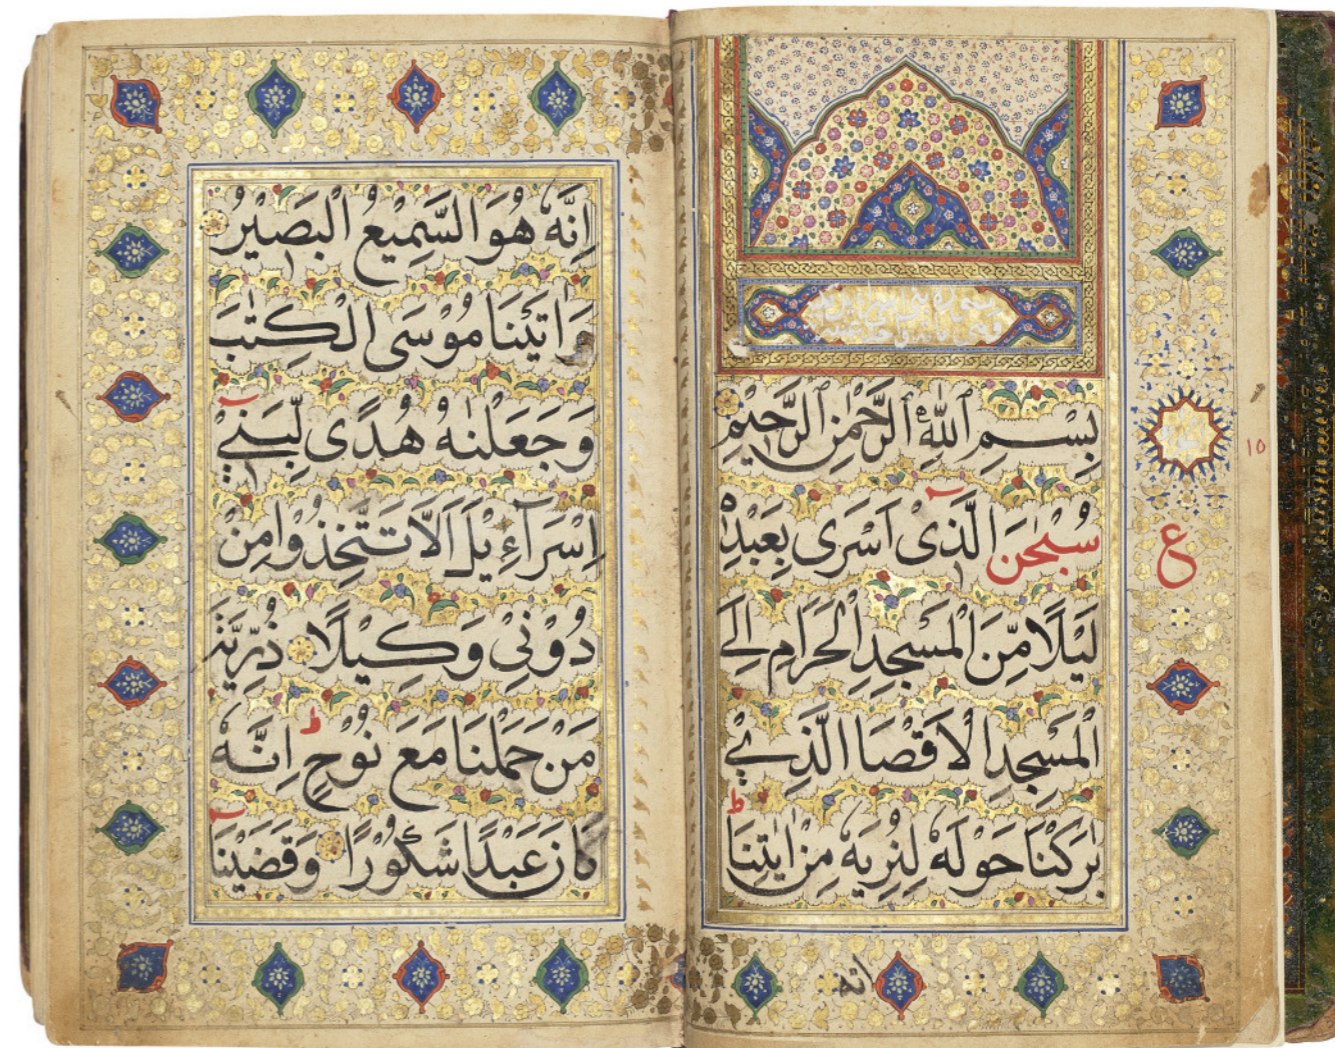 ١٥
ع
بِسْمِ ٱللّٰهِ ٱلرَّحْمٰنِ ٱلرَّحِيْمِ
سُبْحٰنَ الَّذِىْ اَسْرٰى بِعَبْدِهٖ
لَيْلًا مِّنَ الْمَسْجِدِ الْحَرَامِ اِلَى
الْمَسْجِدِ الْاَقْصَا الَّذِيْ
بٰرَكْنَا حَوْلَهٗ لِنُرِيَهٗ مِنْ اٰيٰتِنَا ط
انه
اِنَّهٗ هُوَ السَّمِيْعُ الْبَصِيْرُ
وَاٰتَيْنَا مُوْسَى الْكِتٰبَ
وَجَعَلْنٰهُ هُدًى لِّبَنِيْ
اِسْرَآءِيْلَ اَلَّا تَتَّخِذُوْا مِنْ
دُوْنِيْ وَكِيْلًا ذُرِّيَّةَ
مَنْ حَمَلْنَا مَعَ نُوْحٍ ط اِنَّهٗ
كَانَ عَبْدًا شَكُوْرًا وَقَضَيْنَا